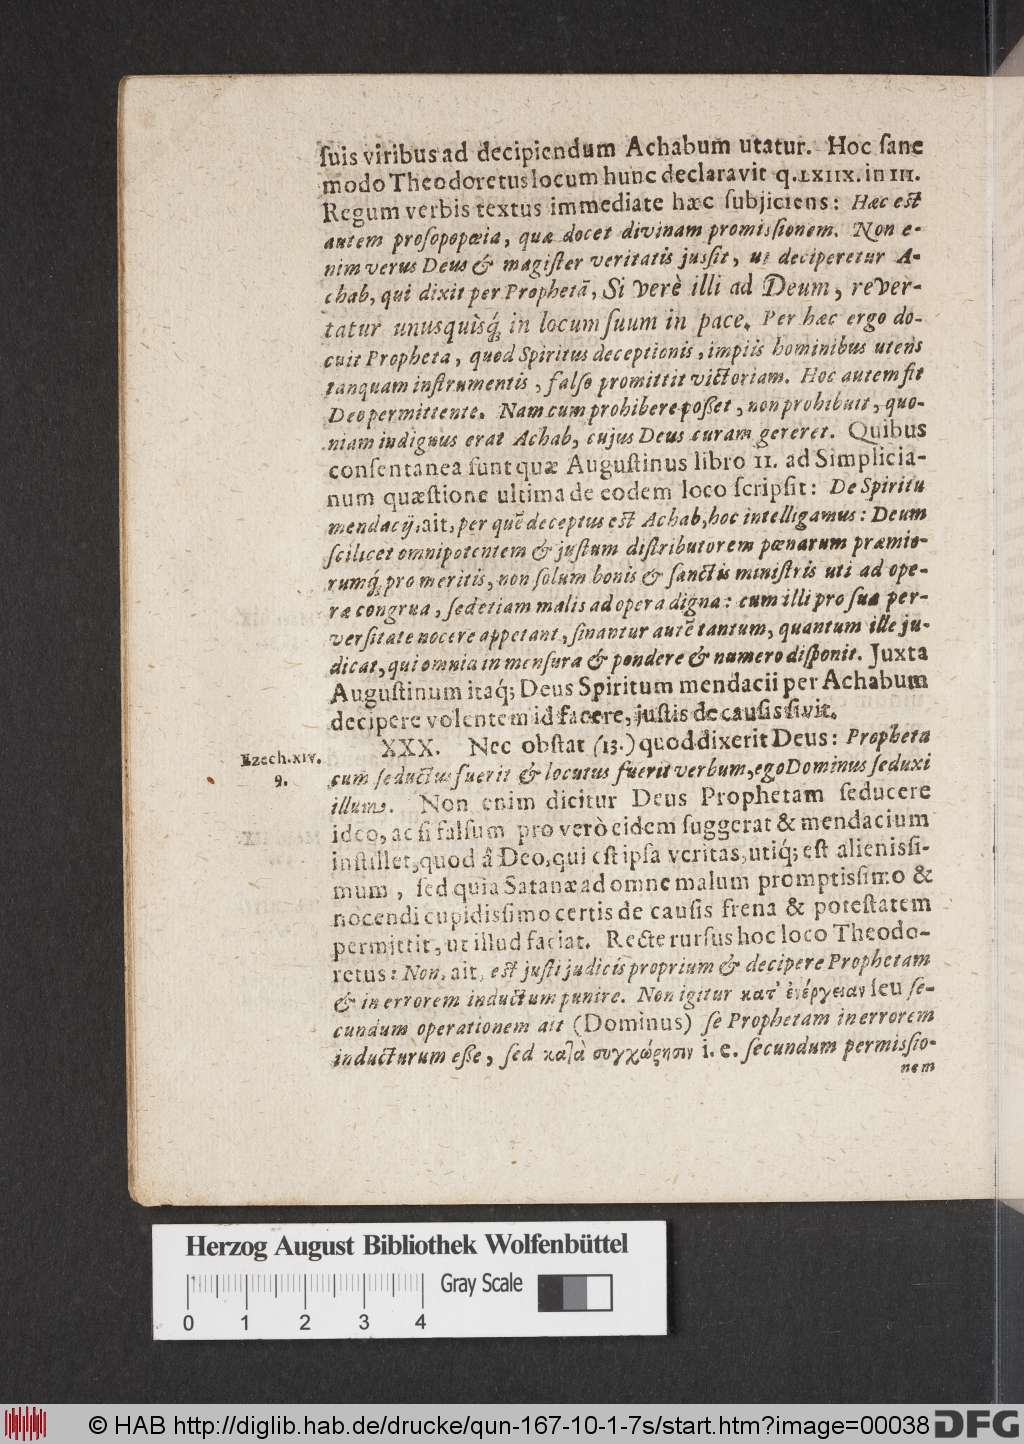 ſuis viribus ad decipiendum Achabum utatur. Hoc ſane
modo Theodoretus locum hunc declaravit q. LXIIX. in III.
Regum verbis textus immediate hæc ſubjiciens: Hæc eſt
autem proſopopœia, quæ docet divinam promiſſionem. Non e-
nim verus Deus & magiſter veritatis juſſit, ut deciperetur A-
chab, qui dixit per Prophetā, Si verè illi ad Deum, rever-
tatur unusquisq́ in locum ſuum in pace. Per hæc ergo do-
cuit Propheta, quod Spiritus deceptionis, impiis hominibus utens
tanquam inſtrumentis, falſo promittit victoriam. Hoc autem fit
Deo permittente. Nam cum prohibere poſſet, non prohibuit, quo-
niam indignus erat Achab, cujus Deus curam gereret. Quibus
conſentanea ſunt quæ Auguſtinus libro II. ad Simplicia-
num quæſtione ultima de eodem loco ſcripſit: De Spiritu
mendacij, ait, per quē deceptus eſt Achab, hoc intelligamus: Deum
ſcilicet omnipotentem & juſtum diſtributorem pœnarum præmio-
rumq́ pro meritis, non ſolum bonis & ſanctis miniſtris uti ad ope-
ra congrua, ſed etiam malis ad opera digna: cum illi pro ſua per-
verſitate nocere appetant, ſinantur autē tantum, quantum ille ju-
dicat, qui omnia in menſura & pondere & numero diſponit. Juxta
Auguſtinum itaq́; Deus Spiritum mendacii per Achabum
decipere volentem id facere, juſtis de cauſis ſivit.
XXX. Nec obſtat (13.) quod dixerit Deus: Propheta
Ezech. XIV.
9.
cum ſeductus fuerit & locutus fuerit verbum, ego Dominus ſeduxi
illum. Non enim dicitur Deus Prophetam ſeducere
ideo, ac ſi falſum pro verò eidem ſuggerat & mendacium
inſtillet, quod â Deo, qui eſt ipſa veritas, utiq́; eſt alieniſſi-
mum, ſed quia Satanæ ad omne malum promptiſſimo &
nocendi cupidiſſimo certis de cauſis frena & poteſtatem
permittit, ut illud faciat. Recte rurſus hoc loco Theodo-
retus: Non, ait, eſt juſti judicis proprium & decipere Prophetam
& in errorem inductum punire. Non igitur κατ᾽ ἐνέργειαν ſeu ſe-
cundum operationem ait (Dominus) ſe Prophetam in errorem
inducturum eſſe, ſed κατὰ συγχώρησιν i. e. ſecundum permiſſio-
nem
Herzog August Bibliothek Wolfenbüttel
Gray Scale
0 1 2 3 4
© HAB http://diglib.hab.de/drucke/qun-167-10-1-7s/start.htm?image=00038
DFG